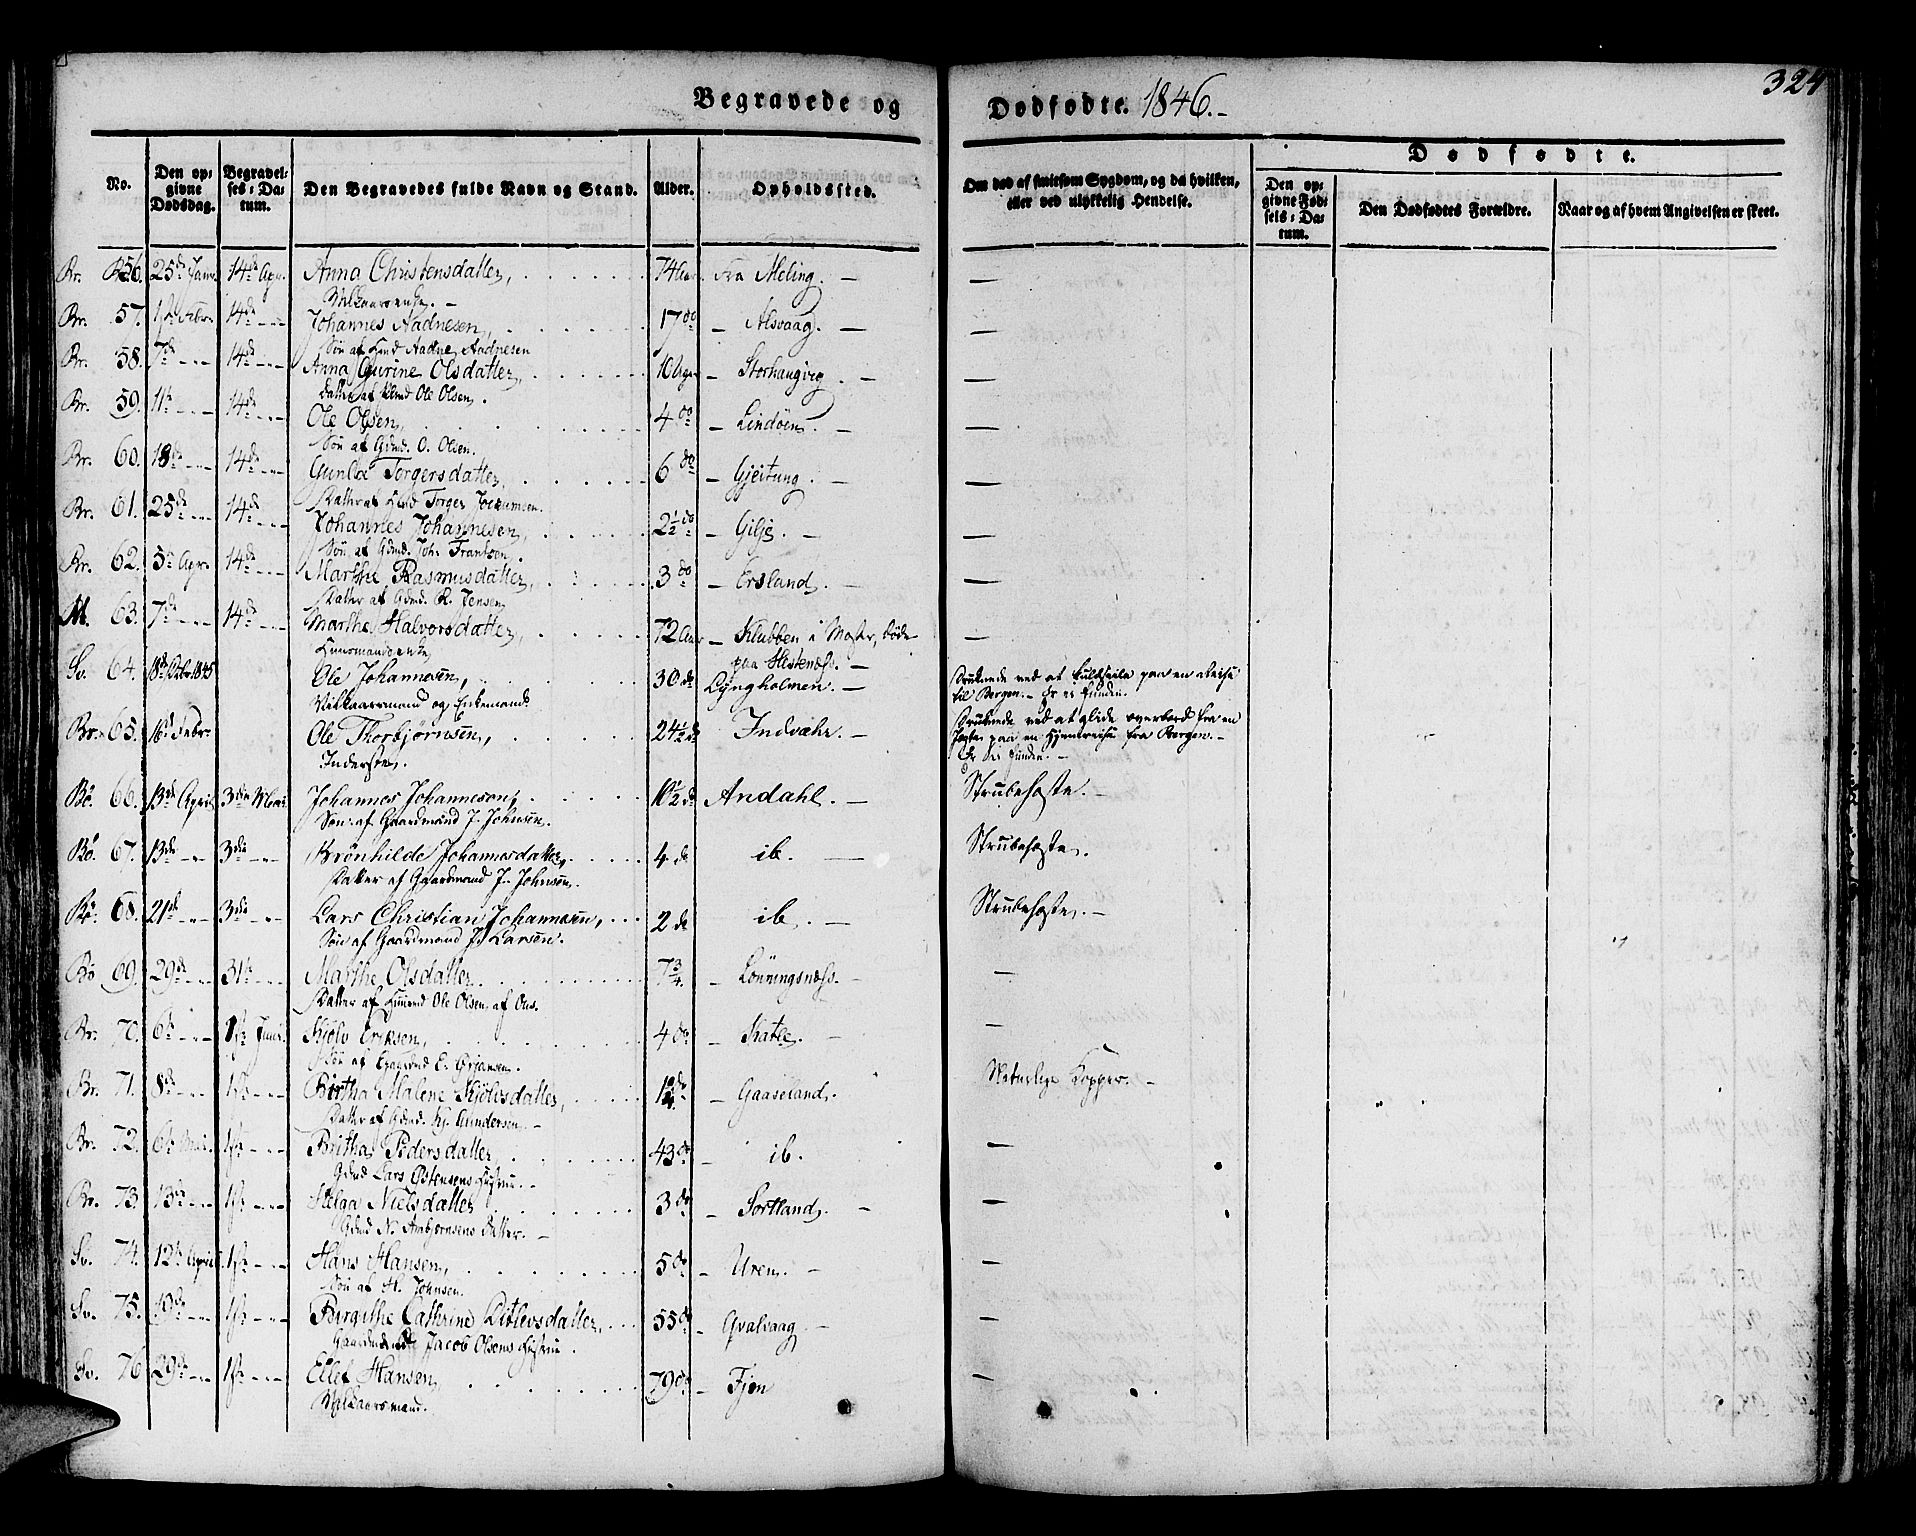 Begravede og Dødfødte. 1846.-
324
No.
Den opgivne Dødsdag.
Begravelses-Datum.
Den Begravedes fulde Navn og Stand.
Alder.
Opholdssted.
Om død af smitsom Sygdom, og da hvilken, eller ved ulykkelig Hendelse.
Dødfødte.
Den opgivne Fødsels-Datum.
Den Dødfødtes Forældre.
Naar og af hvem Angivelsen er skeet.
Br. 56. 25de Janr. 14de Apr. Anna Christensdatter, 74 Aar fra Meling. — —
Br. 57. 1ste Febr. 14de Johannes Aadnesen, 17 do – Alsvaag. — —
Søn af Aadne Aadnesen
Br. 58. 7de 14de Anna Gurine Olsdatter, – Storhaugvig. — —
Datter af Ole Olsen.
Br. 59. 11te 14de Ole Olsen, 4 do – Lindøen. — —
Søn af Gdmd. O. Olsen.
Br. 60. 18de 14de Torgersdatter, 6 do – Gjeitung. — —
Datter af Torger Jocumsen.
Br. 61. 25de 14de Johannes Johannesen, 2½ do – Gilje. — —
Søn af Gdmd. Joh. Frantsen.
Br. 62. 5te Apr. 14de Marthe Rasmusdatter, 3 do – Ersland. — —
Datter af Gdmd. R. Jensen
M. 63. 7de 14de Marthe Halvorsdatter, 72 Aar – Klubben i Moster, døde —
paa Hestenæss. —
Sv. 64. 18de 1845 Ole Johannesen, 30 do Lyngholmen. — Druknede ved at kuldseile paa en Reise
til Bergen. – Er ei funden.
Vilkaarsmand og Enkemand
Br. 65. 16de Febr. Ole Thorbjørnsen, 24½ do Indvæhr. — Druknede ved at glide overbord fra en
Jagt paa en Hjemreise fra Bergen. –
Er ei funden. –
Bö. 66. 13de April 3die Mai Johannes Johannesen, 10½ do Andahl. — Strubehoste. –
Søn af Gaardmand J. Johnsen.
Bö. 67. 13de 3die Brönhilde Johannesdatter, 4 do ib. — Strubehoste.
Datter af Gaardmand J. Johnsen.
Bö. 68. 21de 3die Lars Christian Johannesen, 2 do ib. — Strubehoste. –
Søn af Gaardmand J. Larsen.
Bö 69. 29de 31te Marthe Olsdatter. 7¾ – Lönningsnæss. — —
Datter af Ole Olsen af
Br. 70. 6te 1ste Juni Eriksen, 4 do – Katle. — —
Søn af E. Ørjansen.
Br. 71. 8de 1ste Bertha Malene Kjölvsdatter, – Gaaseland. Naturlige Kopper. –
Datter af Gdmd. Kj. Gundersen. –
Br. 72. 6te Mai. 1ste Britha Pedersdatter, 43 do – ib. —
Gdmd Lars Østensens Hustru. –
Br. 73. 13de 1ste Helga Nielsdatter 3 do – Sortland. — —
Gdmd N. Anbjørnsens Datter. –
Sv. 74. 12te April 1ste Hans Hansen, 5 do – Uren. – —
Søn af H. Johnsen.
Sv. 75. 19de 1ste Birgithe Cathrine Ditlevsdatter, 55 do – Qvalvaag – —
Jacob Olsens Hustru.
Sv. 76 29de 1ste Ellef Hansen 79 do – Fjon —
Vilkaarsmand.